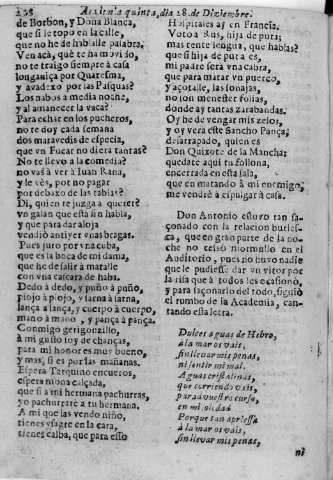 208 Academia quinta, dia 28. de Diziembre.
de Borbon, y Doña Blanca,
que si le topo en la calle,
que no he de hablalle palabra.
Ven acà, què te ha movido,
no te traigo siempre à casa
longaniça por Quaresma,
y avadexo por las Pasquas?
Los nabos à media noche,
y al amanecer la vaca?
Para echar en los pucheros,
no te doy cada semana
dos maravedis de especia,
que un Fucar no diera tantas?
No te llevo à la comedia?
no vas à ver à Iuan Rana,
y le vès, por no pagar
por debaxo de las tablas?
Di, quien te juzga a
un galan que està sin habla,
y que para dar aloja
vendiò antiyer unas bragas.
Pues juro por una cuba,
que es la boca de mi dama,
que he de salir à matalle
con una cascara de haba.
Dedo à dedo, y puño à puño,
piojo à piojo, y sarna à sarna,
lança a lança, y cuerpo à cuerpo,
mano à mano, y pança à pança.
Conmigo gerigonzillo,
à mi gusto soy de chanças,
para mi honor es muy bueno,
y mas, si es por las mañanas.
Espera Tarquino encueros,
espera mona calçada,
que si a mi hermana pachurras,
yo pachurrarè a tu hermana.
A mi que las vendo niño,
tienes usagre en la cara,
tienes calba, que para esso
Hospitales ay en Francia.
Voto a Rus, hija de puta;
mas tente lengua, que hablas?
que si hija de puta es,
mi padre serà una cabra,
que para matar un puerco,
y açotalle, las sonajas,
no son menester folias,
donde ay tantas zarabandas.
Oy he de vengar mis zelos,
y oy verà este Sancho Pança;
desarrapado, quien es
Don Quixote de la Mancha:
quedate aqui tu follona,
encerrada en esta sala,
que en matando à mi enemigo,
me vendrè à espulgar à casa.
Don Antonio estuvo tan sa-
çonado con la relacion burles-
ca, que en gran parte de la no-
che no cesó mormullo en el
Auditorio, pues no huvo nadie
que le pudiesse dar un vitor por
la risa que à todos les ocasionò,
y para saçonarlo del todo, siguiò
el rumbo de la Academia, can-
tando esta letra.
Dulces aguas de Hebro,
à la mar os vais,
sin llevar mis penas,
ni sentir mi mal.
Aguas cristalinas,
que corriendo vais,
para vuestro curso,
en mi soledad
Porque tan apriessa
à la mar os vais,
sin llevar mis penas,
ni